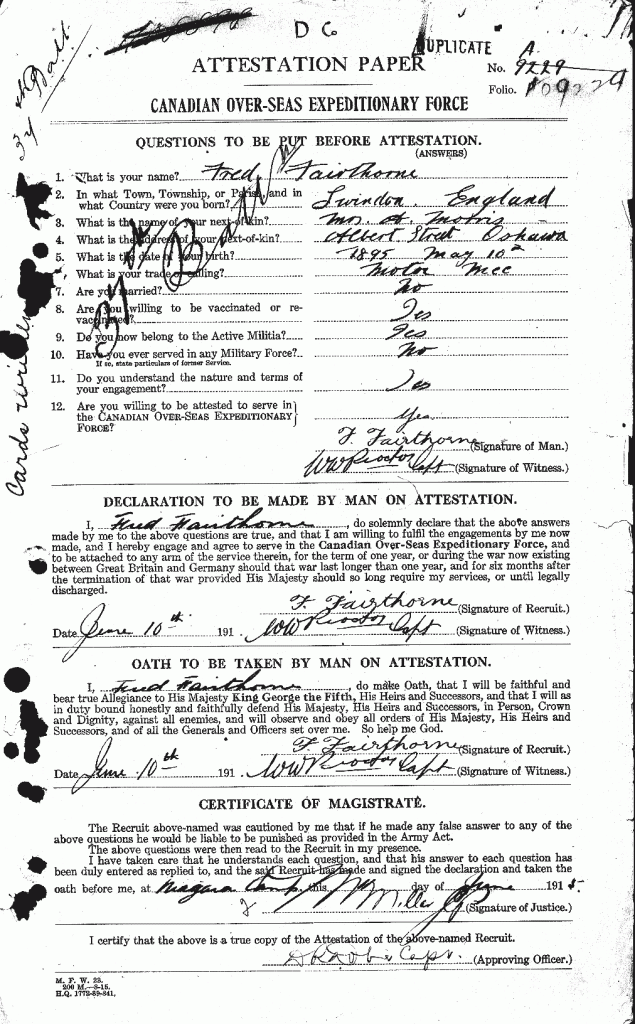 D C
DUPLICATE A
ATTESTATION PAPER
No. 9229
Folio.
34th Batt.
CANADIAN OVER-SEAS EXPEDITIONARY FORCE
QUESTIONS TO BE PUT BEFORE ATTESTATION.
(ANSWERS)
37th Batt
1. What is your name? Fred Fairthorne
2. In what Town, Township, or Parish, and in
what Country were you born? Swindon England
3. What is the name of your next-of-kin? Mrs. A. Morris
4. What is the address of your next-of-kin? Albert Street Oshawa
5. What is the date of your birth? 1895 May 10th
6. What is your trade or calling? Motor Mec
7. Are you married? No
8. Are you willing to be vaccinated or re-
vaccinated? Yes
9. Do you now belong to the Active Militia? Yes
10. Have you ever served in any Military Force? No
If so, state particulars of former Service.
11. Do you understand the nature and terms of
your engagement? Yes
12. Are you willing to be attested to serve in
the CANADIAN OVER-SEAS EXPEDITIONARY
FORCE? Yes
F. Fairthorne (Signature of Man.)
WW Proctor Capt (Signature of Witness.)
Cards written
DECLARATION TO BE MADE BY MAN ON ATTESTATION.
I, Fred Fairthorne, do solemnly declare that the above answers
made by me to the above questions are true, and that I am willing to fulfil the engagements by me now
made, and I hereby engage and agree to serve in the Canadian Over-Seas Expeditionary Force, and
to be attached to any arm of the service therein, for the term of one year, or during the war now existing
between Great Britain and Germany should that war last longer than one year, and for six months after
the termination of that war provided His Majesty should so long require my services, or until legally
discharged.
F. Fairthorne (Signature of Recruit.)
Date June 10th 191 . WW Proctor Capt (Signature of Witness.)
OATH TO BE TAKEN BY MAN ON ATTESTATION.
I, Fred Fairthorne, do make Oath, that I will be faithful and
bear true Allegiance to His Majesty King George the Fifth, His Heirs and Successors, and that I will as
in duty bound honestly and faithfully defend His Majesty, His Heirs and Successors, in Person, Crown
and Dignity, against all enemies, and will observe and obey all orders of His Majesty, His Heirs and
Successors, and of all the Generals and Officers set over me. So help me God.
F. Fairthorne (Signature of Recruit.)
Date June 10th 191 . WW Proctor Capt (Signature of Witness.)
CERTIFICATE OF MAGISTRATE.
The Recruit above-named was cautioned by me that if he made any false answer to any of the
above questions he would be liable to be punished as provided in the Army Act.
The above questions were then read to the Recruit in my presence.
I have taken care that he understands each question, and that his answer to each question has
been duly entered as replied to, and the said Recruit has made and signed the declaration and taken the
oath before me, at Niagara Camp this day of June 1915.
Miller (Signature of Justice.)
I certify that the above is a true copy of the Attestation of the above-named Recruit.
Capt. (Approving Officer.)
M. F. W. 23.
200 M.—3-15.
H.Q. 1772-39-841.